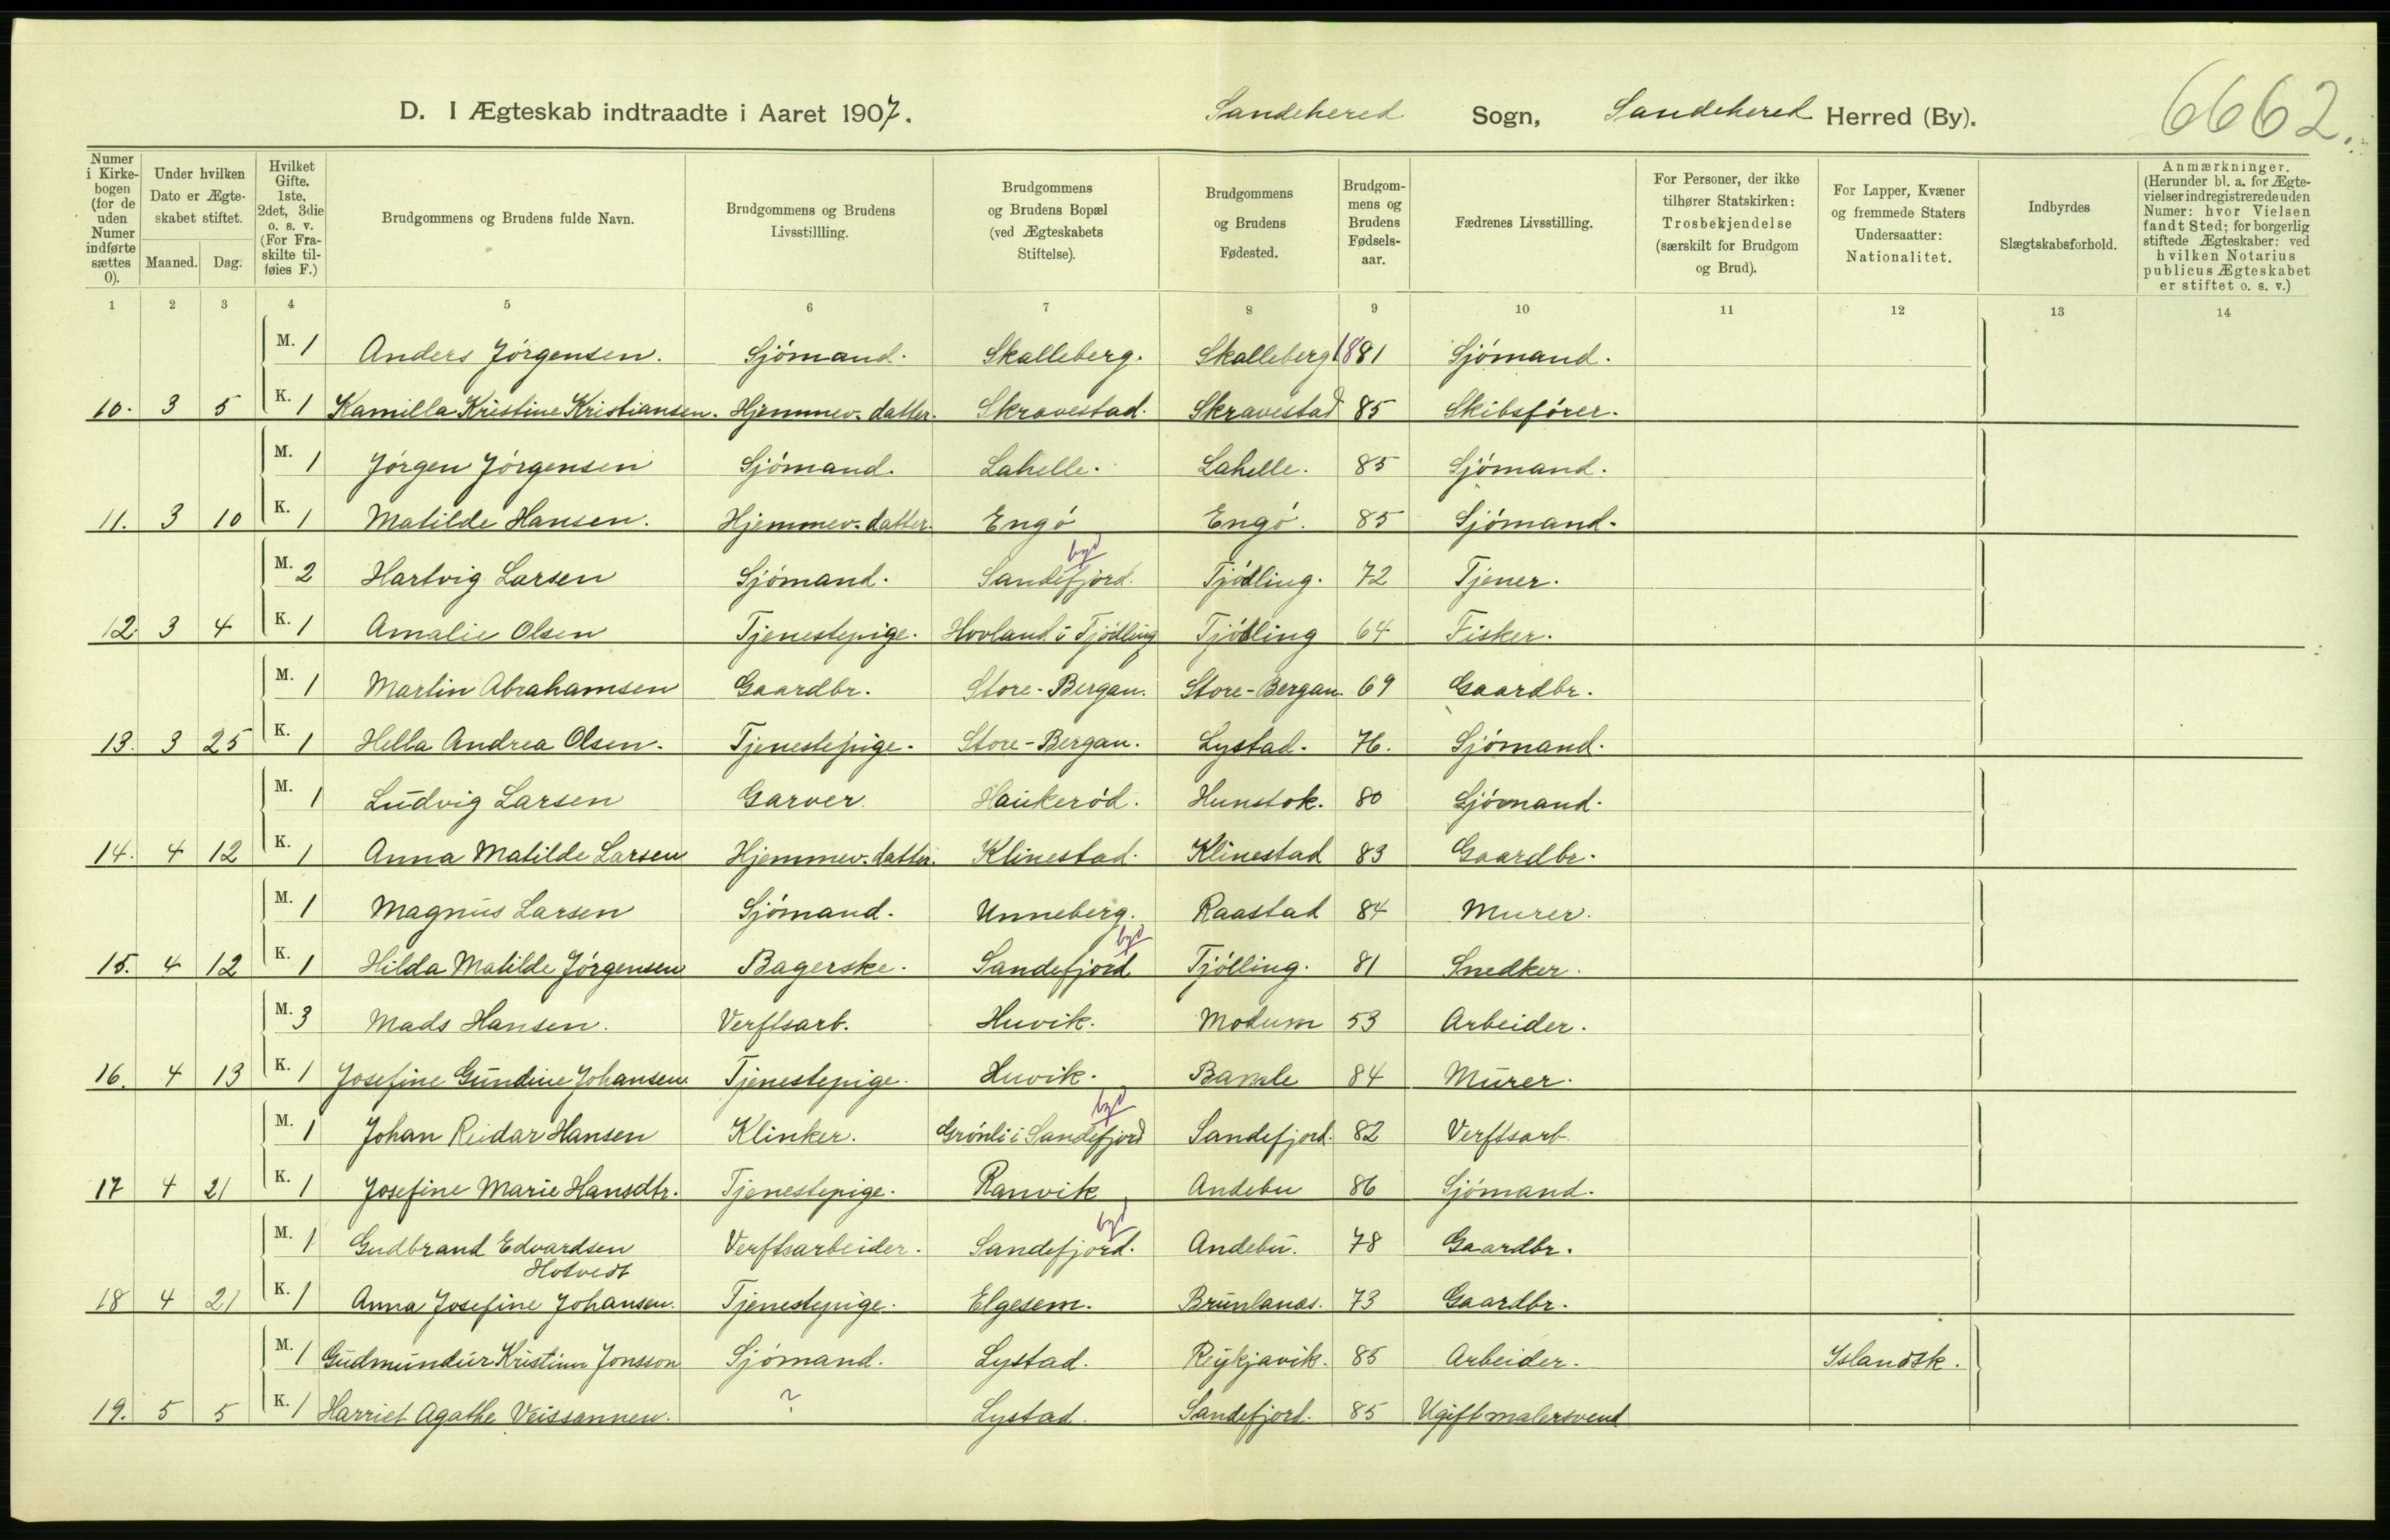 D. I Ægteskab indtraadte i Aaret 1907. Sandehered Sogn, Sandehered Herred (By). 6662.
Numer i Kirkebogen (for de uden Numer indførte sættes 0).
Under hvilken Dato er Ægteskabet stiftet.
Maaned. Dag.
Hvilket Gifte. 1ste, 2det, 3die o. s. v. (For Fraskilte tilføies F.)
Brudgommens og Brudens fulde Navn.
Brudgommens og Brudens Livsstillling.
Brudgommens og Brudens Bopæl (ved Ægteskabets Stiftelse).
Brudgommens og Brudens Fødested.
Brudgommens og Brudens Fødselsaar.
Fædrenes Livsstilling.
For Personer, der ikke tilhører Statskirken: Trosbekjendelse (særskilt for Brudgom og Brud).
For Lapper, Kvæner og fremmede Staters Undersaatter: Nationalitet.
Indbyrdes Slægtskabsforhold.
Anmærkninger. (Herunder bl. a. for Ægtevielser indregistrerede uden Numer: hvor Vielsen fandt Sted; for borgerlig stiftede Ægteskaber: ved hvilken Notarius publicus Ægteskabet er stiftet o. s. v.)
1 2 3 4 5 6 7 8 9 10 11 12 13 14
M. 1 Anders Jörgensen. Sjömand. Skalleberg. Skalleberg 1881 Sjömand.
10. 3 5 K. 1 Kamilla Kristine Kristiansen. Hjemmev. datter. Skravestad. Skravestad 85 Skibsförer.
M. 1 Jörgen Jörgensen Sjömand. Lahelle. Lahelle. 85 Sjömand.
11. 3 10 K. 1 Matilde Hansen. Hjemmev. datter. Engö Engö. 85 Sjömand.
byd
M. 2 Hartvig Larsen Sjömand. Sandefjord. Tjödling. 72 Tjener.
12. 3 4 K. 1 Amalie Olsen Tjenestepige. Hovland i Tjödling Tjödling 64 Fisker.
M. 1 Martin Abrahamsen Gaardbr. Store-Bergan. Store-Bergan. 69 Gaardbr.
13. 3 25 K. 1 Hella Andrea Olsen. Tjenestepige. Store-Bergan. Lystad. 76. Sjömand.
M. 1 Ludvig Larsen Garver. Haukeröd. Hunstok. 80 Sjömand.
14. 4 12 K. 1 Anna Matilde Larsen Hjemmev. datter. Klinestad. Klinestad 83 Gaardbr.
M. 1 Magnus Larsen Sjömand. Unneberg. Raastad 84 Murer.
byd
15. 4 12 K. 1 Hilda Matilde Jörgensen Bagerske. Sandefjord Tjölling. 81 Snedker.
M. 3 Mads Hansen. Verftsarb. Huvik. Modum 53 Arbeider.
16. 4 13 K. 1 Josefine Gundine Johansen. Tjenestepige. Huvik. Bamle 84 Murer.
byd
M. 1 Johan Reidar Hansen Klinker. Grönli i Sandefjord Sandefjord. 82 Verftsarb.
17 4 21 K. 1 Josefine Marie Hansdtr. Tjenestepige. Ranvik Andebu 86 Sjömand.
byd
M. 1 Gudbrand Edvardsen Verftsarbeider. Sandefjord. Andebu. 78 Gaardbr.
Hotvedt
18 4 21 K. 1 Anna Josefine Johansen. Tjenestepige. Elgesem. Brunlanas. 73 Gaardbr.
M. 1 Gudmundur Kristinn Jonsson Sjömand. Lystad. Reykjavik. 85 Arbeider. Islandsk.
19. 5 5 K. 1 Harriet Agathe Veissannen. ? Lystad. Sandefjord. 85 Ugift malersvend